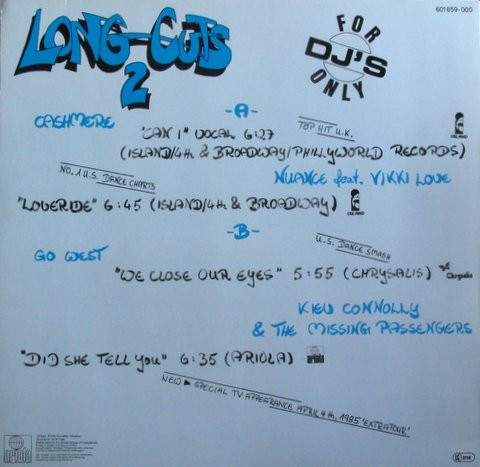 601 659-000
LONG-CUTS
2
FOR
DJ'S
ONLY
-A-
CASHMERE
TOP HIT U.K.
"CAN I" VOCAL 6:27
ISLAND
(ISLAND/4th & BROADWAY/PHILLYWORLD RECORDS)
NO. 1 U.S. DANCE CHARTS
NUANCE feat. VIKKI LOVE
"LOVERIDE" 6:45 (ISLAND/4th & BROADWAY)
ISLAND
-B-
U.S. DANCE SMASH
GO WEST
"WE CLOSE OUR EYES" 5:55 (CHRYSALIS)
Chrysalis
KIEV CONNOLLY
& THE MISSING PASSENGERS
"DID SHE TELL YOU" 6:35 (ARIOLA)
NEW ► SPECIAL TV APPEARANCE APRIL 4th, 1985 'EXTRATOUR'
ARIOLA